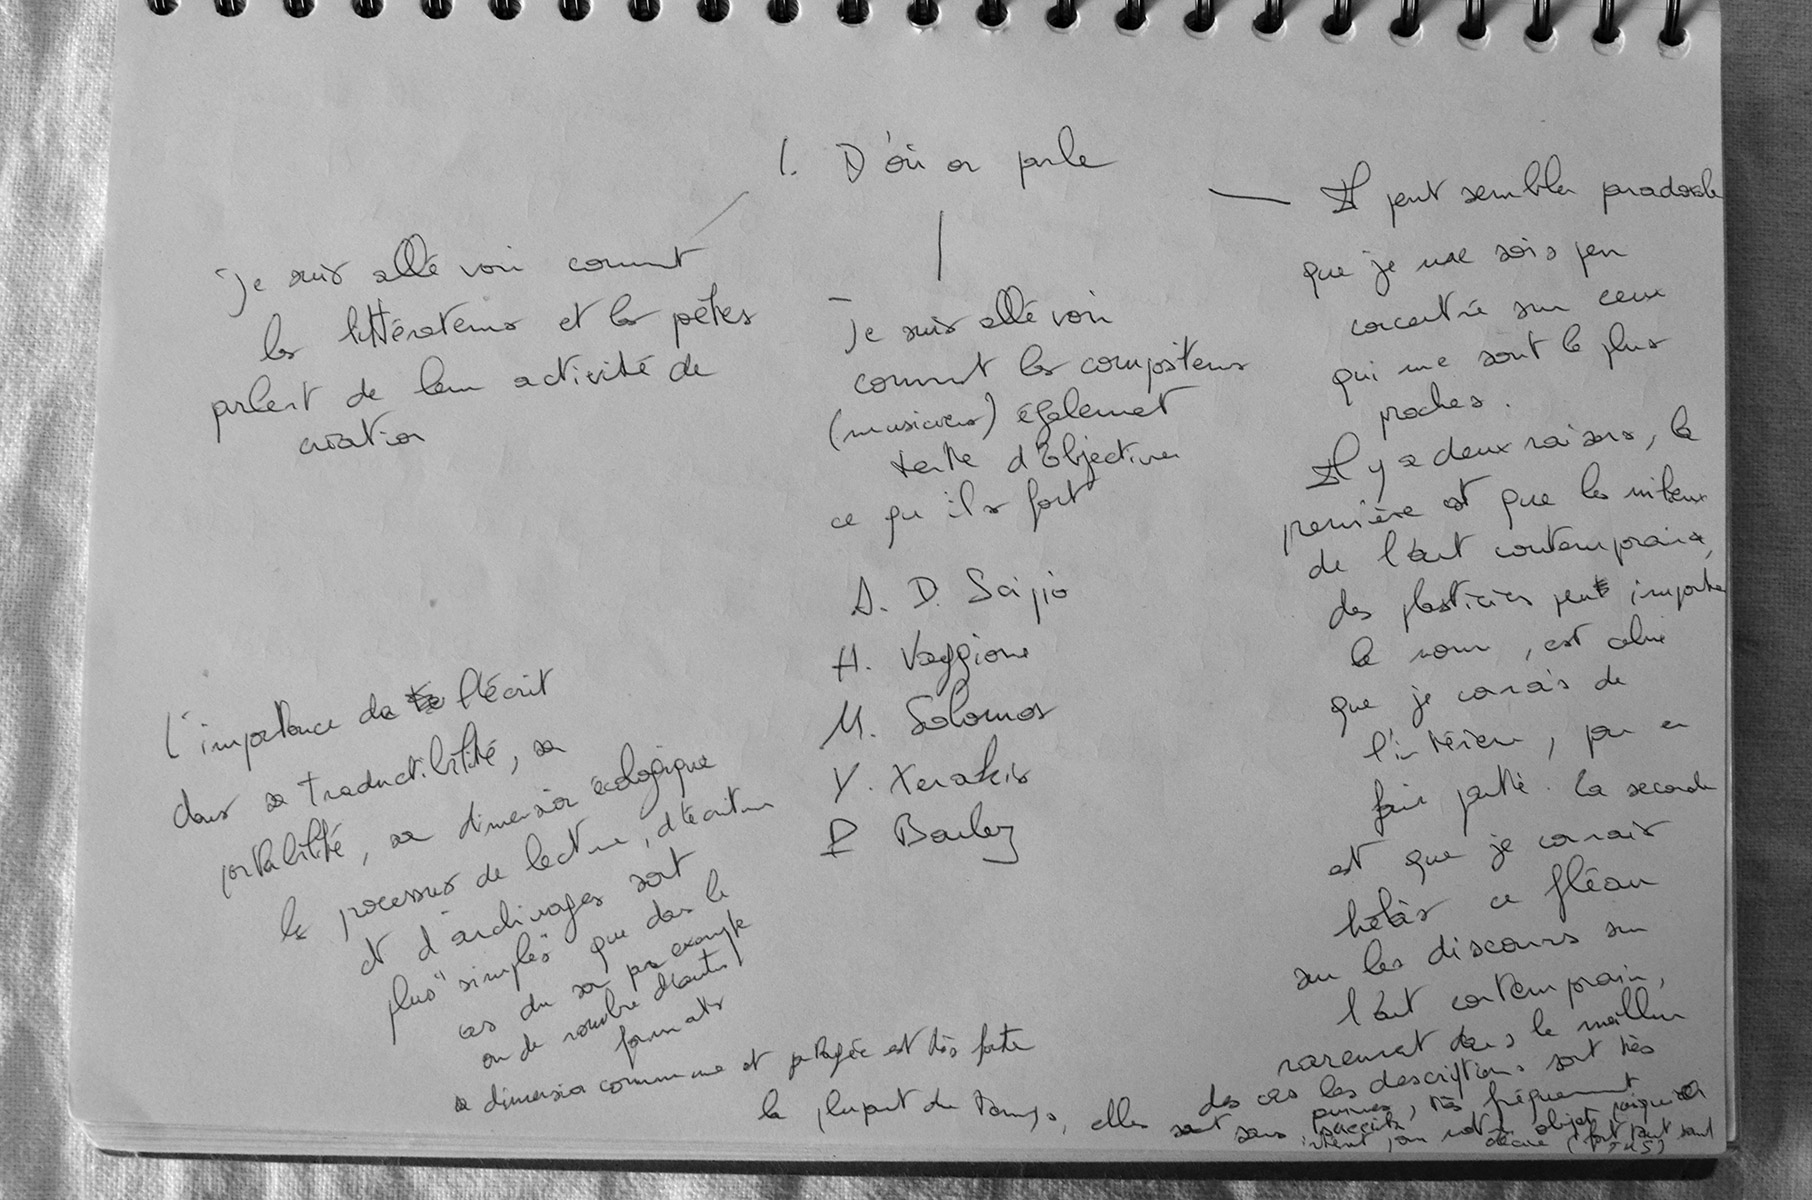 1. D'où on parle
Je suis allé voir comment
les littérateurs et les poètes
parlent de leur activité de
création
Je suis allé voir
comment les compositeurs
(musiciens) également
tente d'objectiver
ce qu'ils font
A. D. Scipio
H. Vaggione
M. Solomos
Y. Xenakis
P Boulez
Il peut sembler paradoxale
que je me sois peu
concentré sur ceux
qui me sont le plus
proches.
Il y a deux raisons, la
première est que les milieux
de l'art contemporain,
des plasticiens peut importe
le nom, est celui
que je connais de
l'intérieur, pour en
faire partie. La seconde
est que je connais
hélas ce fléau
sur les discours sur
l'art contemporain,
rarement dans le meilleur
des cas les descriptions sont très
la plupart du temps, elles sont sans
très fréquemment
objet
L'importance de l'écrit
dans sa traductibilité, sa
portabilité, sa dimension écologique
les processus de lecture, d'écriture
et d'archivages sont
plus "simples" que dans le
cas du son par exemple
ou de nombre d'autres
formats
sa dimension commune et partagée est très forte